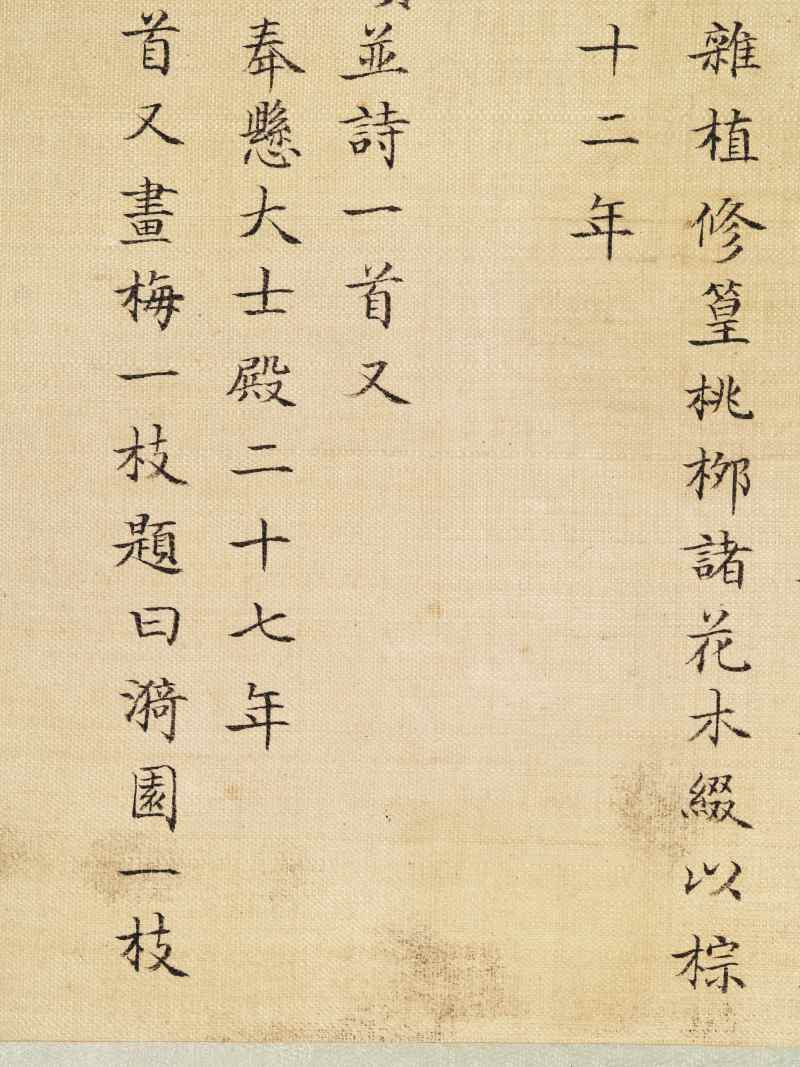 雜植修篁桃柳諸花木綴以棕
十二年
並詩一首又
奉懸大士殿二十七年
首又畫梅一枝題曰漪園一枝